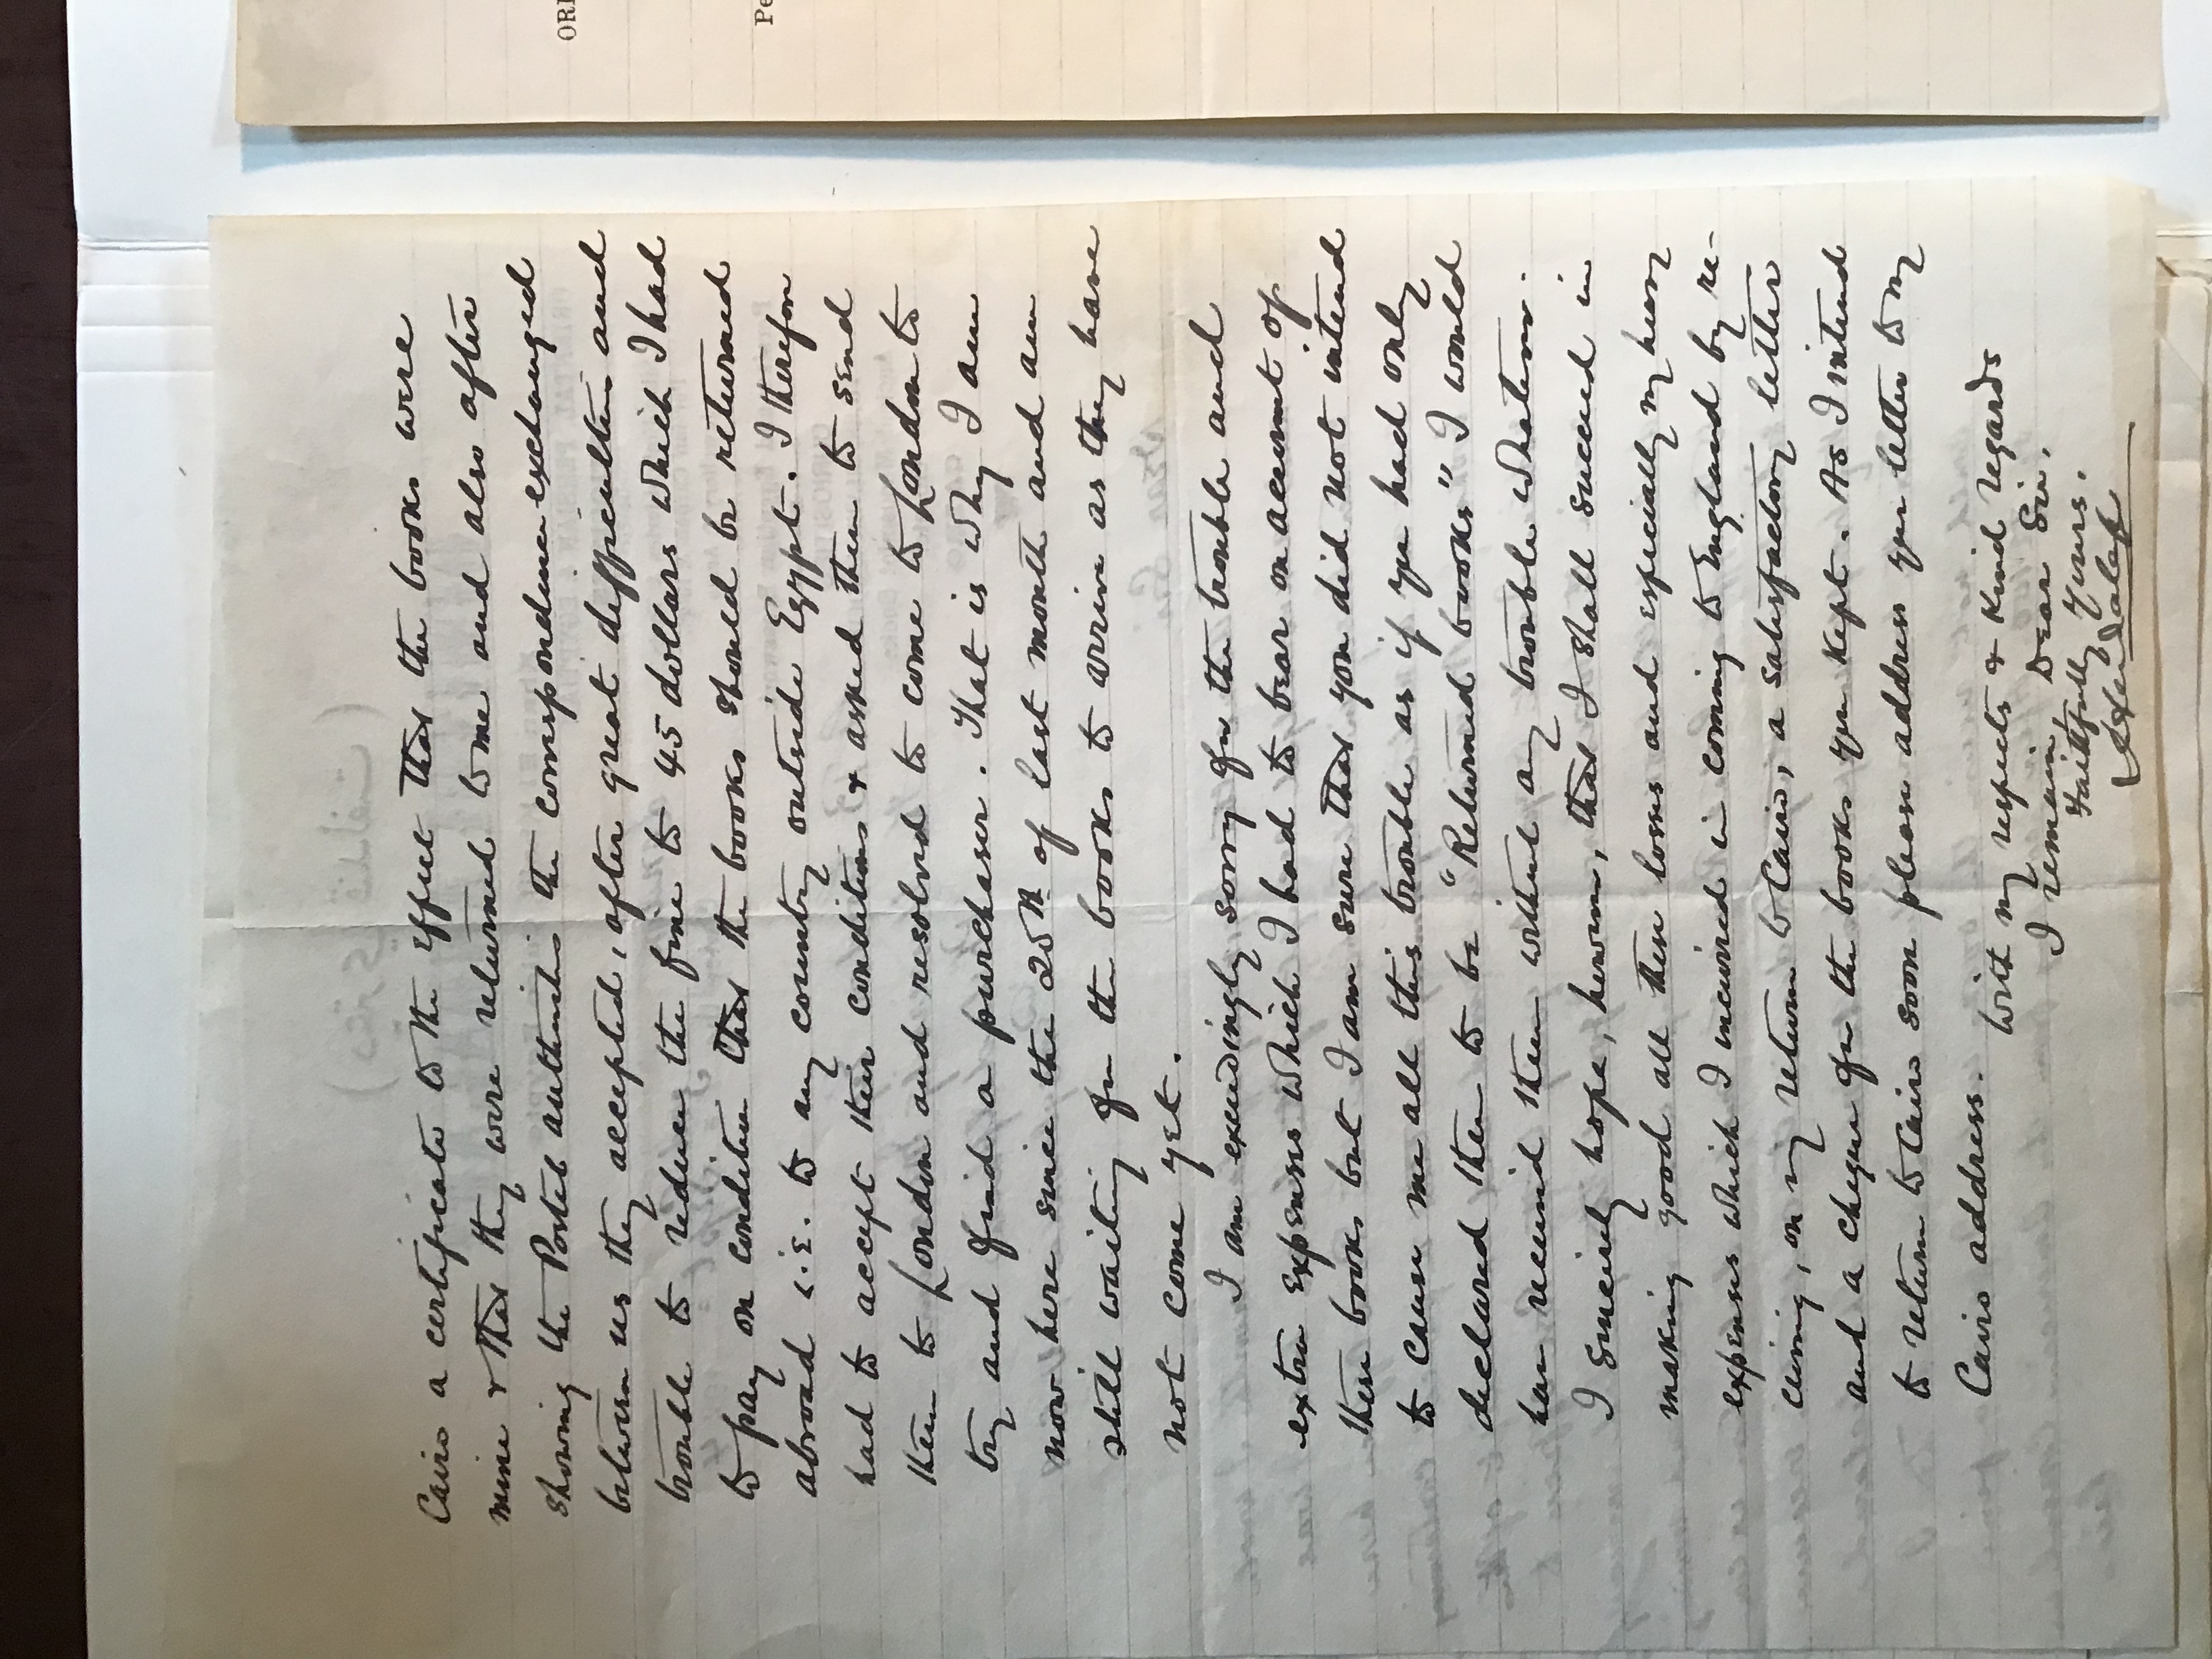 Cairo a certificate to the effect that the books were
mine & that they were returned to me and also after
showing the Postal authorities the correspondence exchanged
between us they accepted, after great difficulties and
trouble to reduce the fine to 45 dollars which I had
to pay on condition that the books should be returned
abroad i.e. to any country outside Egypt. I therefore
had to accept their conditions & asked them to send
them to London and resolved to come to London to
try and find a purchaser. That is why I am
now here since the 25th of last month and am
still waiting for the books to arrive as they have
not come yet.
I am exceedingly sorry for the trouble and
extra expenses which I had to bear on account of
these books but I am sure that you did not intend
to cause me all this trouble as if you had only
declared them to be "Returned books" I would
have received them without any trouble whatever.
I sincerely hope, however, that I shall succeed in
making good all these losses and especially my heavy
expenses which I incurred in coming to England by re-
ceiving, on my return to Cairo, a satisfactory letter
and a cheque for the books you kept. As I intend
to return to Cairo soon please address your letter to my
Cairo address.
With my respects & kind regards
I remain, Dear Sir,
Faithfully yours.
ORI
Pe